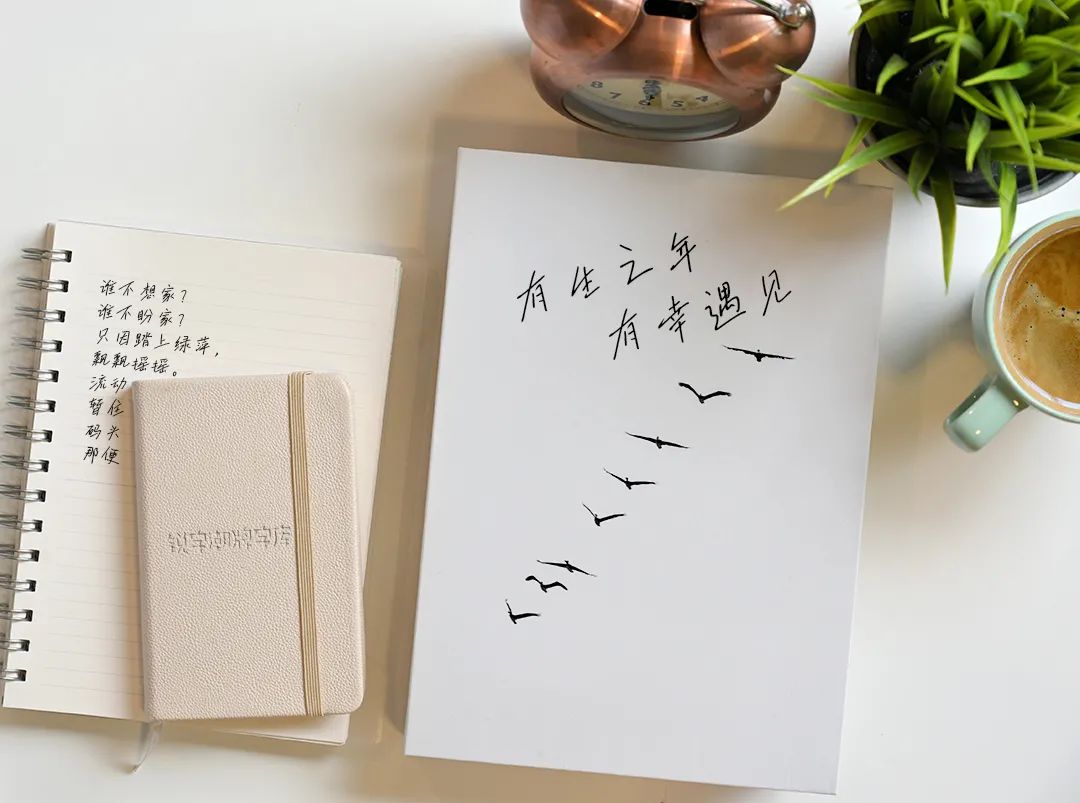 谁不想家?
谁不盼家?
只因踏上绿萍,
飘飘摇摇。
流动
暂住
码头
那便
锐字潮牌字库
有生之年
有幸遇见
8 7 6 5 4